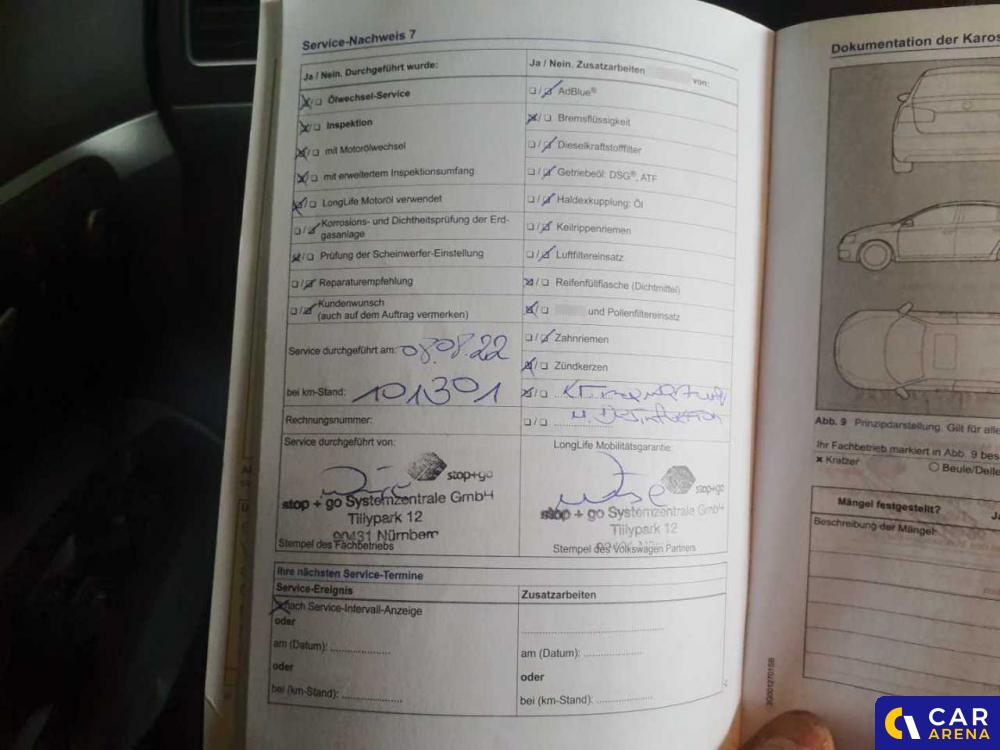 Service-Nachweis 7
Ja / Nein. Durchgeführt wurde:
Ölwechsel-Service
Inspektion
mit Motorölwechsel
mit erweitertem Inspektionsumfang
LongLife Motoröl verwendet
Korrosions- und Dichtheitsprüfung der Erd-
gasanlage
Prüfung der Scheinwerfer-Einstellung
Reparaturempfehlung
Kundenwunsch
(auch auf dem Auftrag vermerken)
Service durchgeführt am: 08.08.22
bei km-Stand: 101301
Rechnungsnummer:
Service durchgeführt von:
stop+go
stop + go Systemzentrale GmbH
Tillypark 12
90431 Nürnberg
Stempel des Fachbetriebs
Ja / Nein. Zusatzarbeiten von:
AdBlue®
Bremsflüssigkeit
Dieselkraftstofffilter
Getriebeöl: DSG®, ATF
Haldexkupplung: Öl
Keilrippenriemen
Luftfiltereinsatz
Reifenfüllflasche (Dichtmittel)
und Pollenfiltereinsatz
Zahnriemen
Zündkerzen
LongLife Mobilitätsgarantie:
stop+go
stop + go Systemzentrale GmbH
Tillypark 12
Nürnberg
Stempel des Volkswagen Partners
Ihre nächsten Service-Termine
Service-Ereignis
nach Service-Intervall-Anzeige
oder
am (Datum):
oder
bei (km-Stand):
Zusatzarbeiten
am (Datum):
oder
bei (km-Stand):
Dokumentation der Karos
Abb. 9 Prinzipdarstellung. Gilt für alle
Ihr Fachbetrieb markiert in Abb. 9 bes
x Kratzer
O Beule/Delle
Mängel festgestellt?
Ja
Beschreibung der Mängel:
3G0012701SB
CAR
ARENA